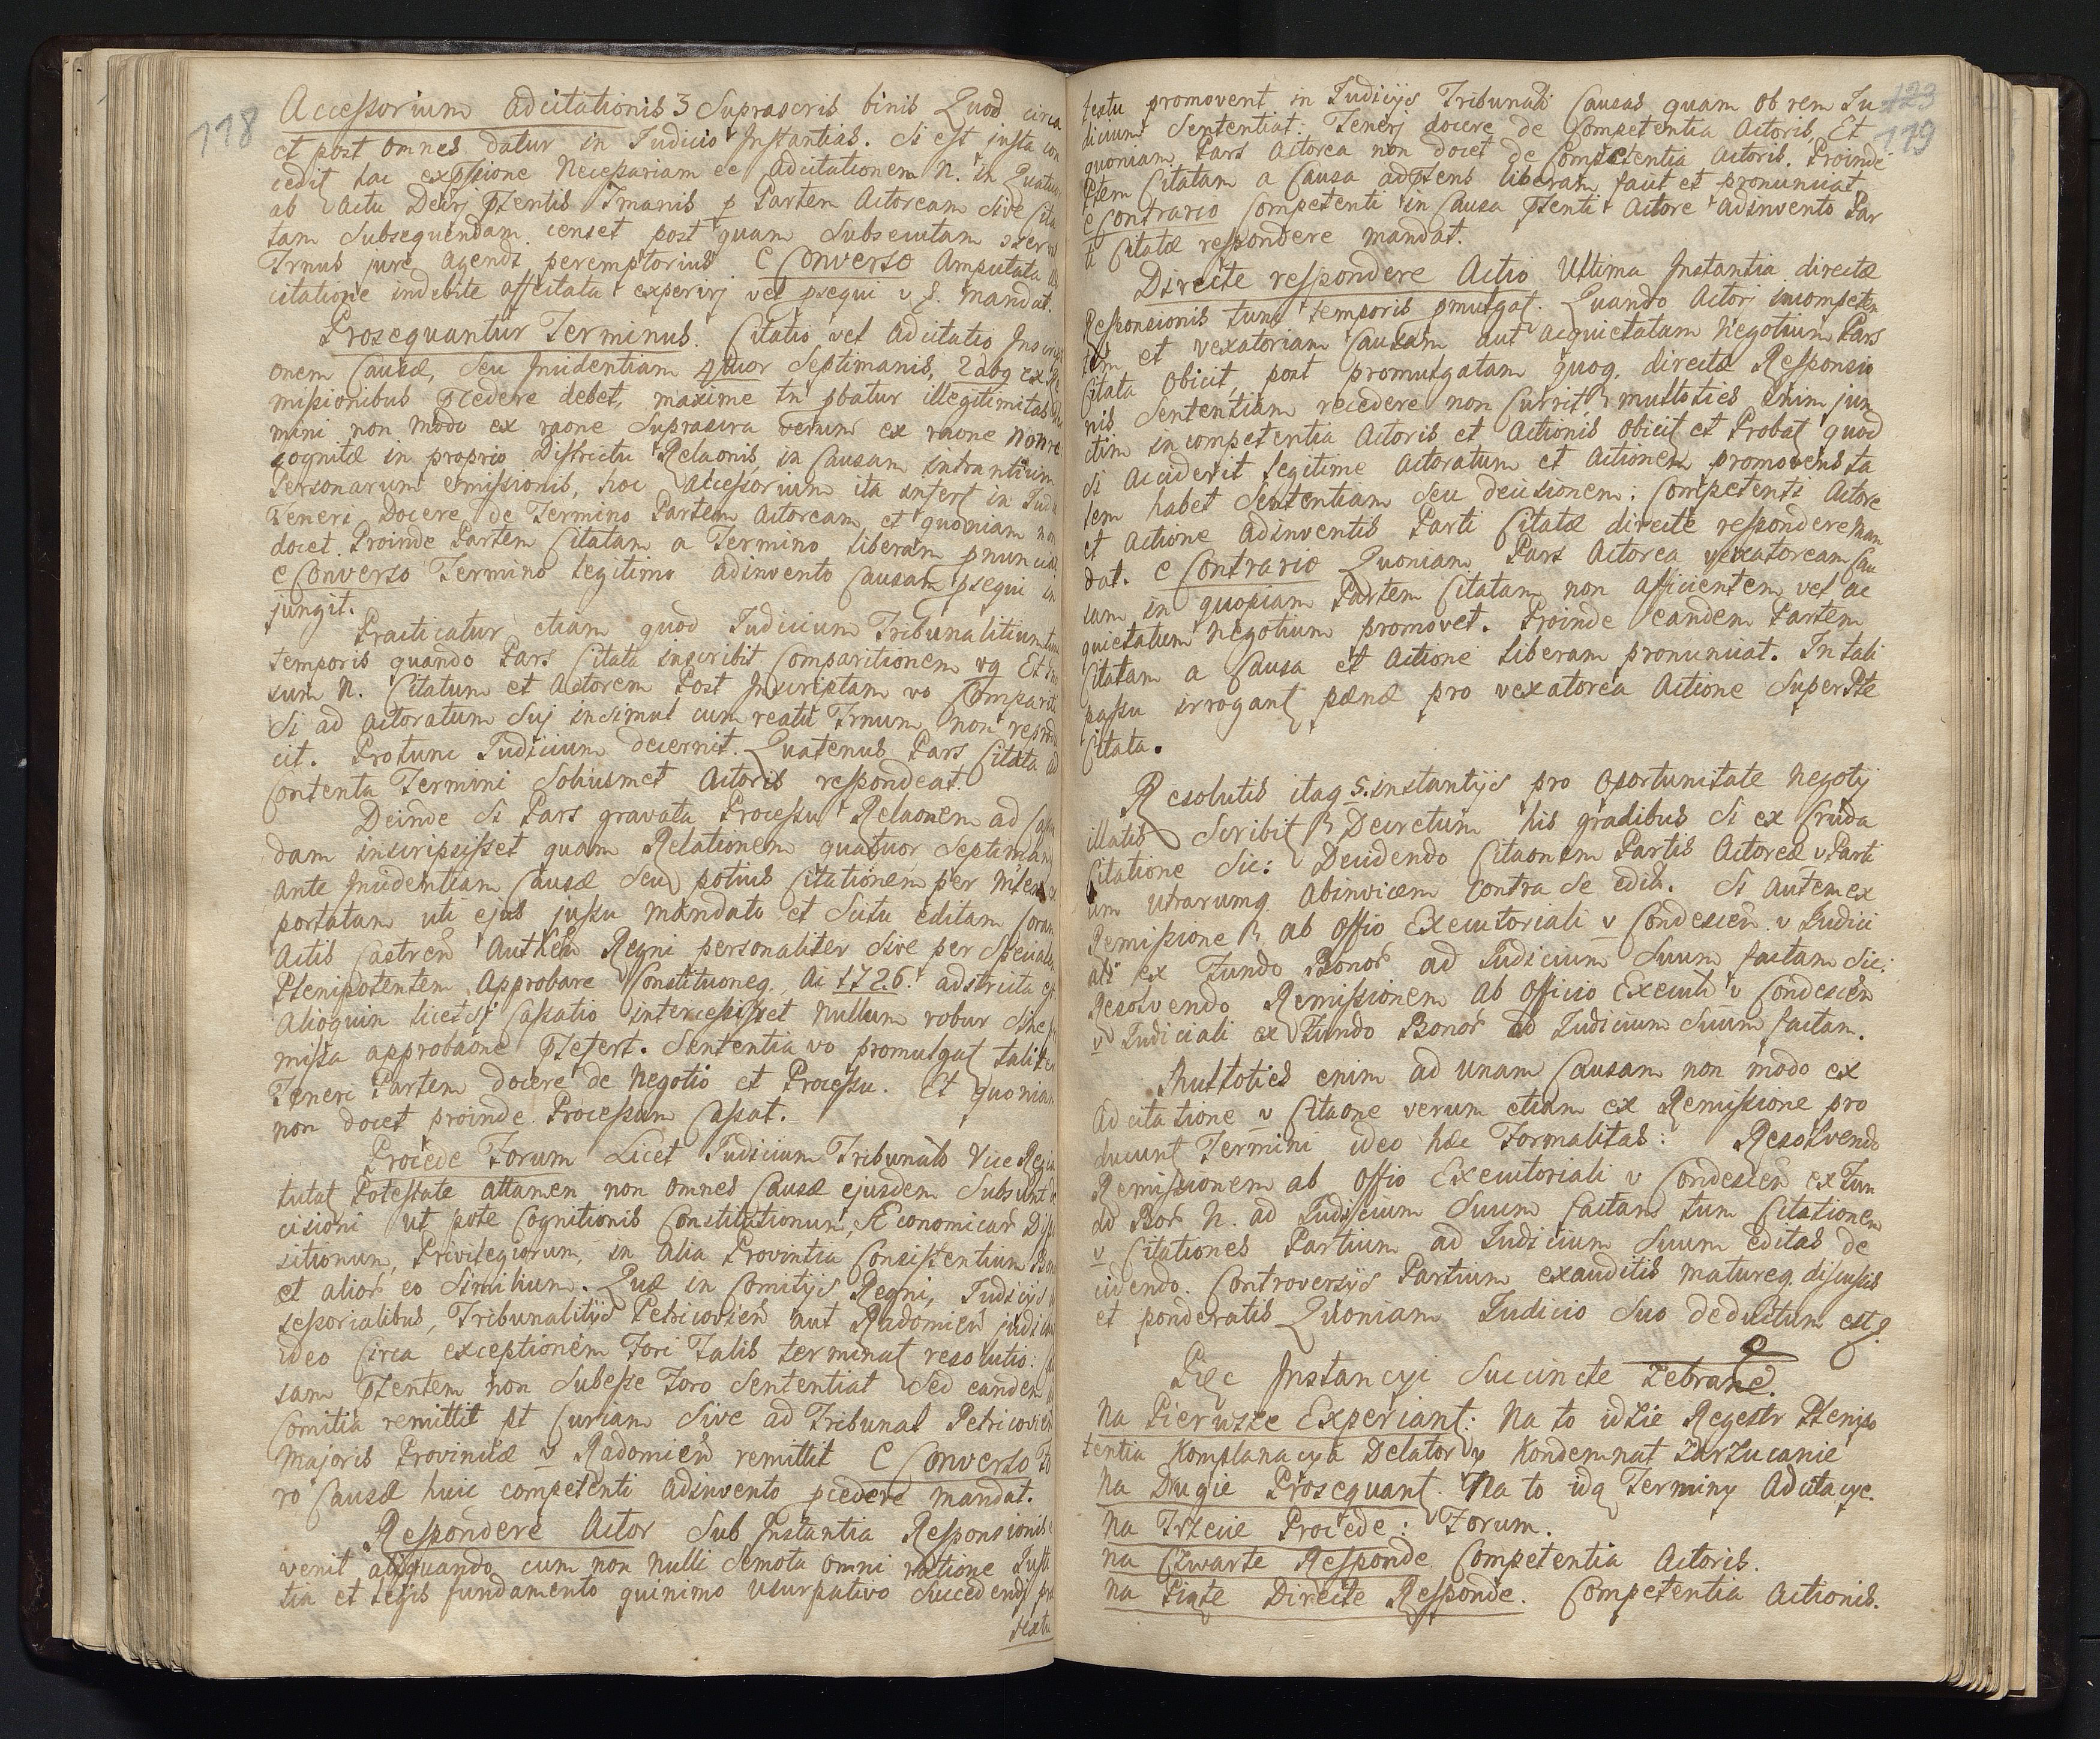 118
Accessorium adcitationis 3 Suprascris binis Quod circa
et post omnes datur in Judicio Instantias. Si est justa con
cedit hac expssione Necessariam ee adcitationem N. in Quatuor
ab Actu Decrj Ptentis Tmanis p Partem Actoream sive Cita
tam Subsequendam censet post quam Subsecutam
Trnus jure agendi peremptorius. E Converso Amputata
citatione indebite affcitata experirj vel psequi v S. mandat.
Prosequantur Terminus. Citatio vel Adcitatio Inscripti
onem Causæ, seu Incidentiam 4tuor Septimanis, 2abq ex Re
missionibus Pcedere debet, maxime tn pbatur illegitimitas
mini non modo ex raone Suprascra verum ex raone Nonre
cognitæ in proprio Districtu Relaonis, in Causam intrantium
Personarum emissionis, hoc Accessorium ita infert in Judi
Teneri Docere de Termino Partem Actoream, et quoniam non
docet. Proinde Partem Citatam a Termino liberam pnunciat
e Converso Termino legitimo adinvento Causam psequi in
jungit.
Practicatur etiam quod Judicium Tribunalitium tunc
temporis quando Pars Citata inscribit Comparitionem vg Et in
sum N. Citatum et Actorem Post Inscriptam vo Compariti
Si ad Actoratum Suj insimul cum reatu Trnum non reprodu
cit. Protunc Judicium decernit. Quatenus Pars Citata ad
Contenta Termini Soliusmet Actoris respondeat.
Deinde Si Pars gravata Processu Relaonem ad Cassan
dam inscripsisset quam Relationem quatuor Septimanis
ante Incidentiam Causæ seu potius Citationem per
portatam uti ejus jussu mandato et Scitu editam Coram
Actis Castren Authen Regni personaliter Sive per Specialem
Plenipotentem Approbare Constituoneq. Ai 1726. adstricta est
Alioquin licet Cassatio intercessisset nullum robur Sine
missa approbaone Ptefert. Sententia vo promulgat taliter
Teneri Partem docere de Negotio et Processu. Et quoniam
non docet proinde Processum Cassat.
Procede Forum Licet Judicium Tribunals Vice Regia
tutat Potestate attamen non omnes Causæ ejusdem Subsunt de
cisioni ut pote Cognitionis Constitutionum, Æconomicar Dispo
sitionum, Privilegiorum, in alia Provintia Consistentium Bon
et alior eo Similium. Quæ in Comitijs Regni, Judicijs
sessorialibus, Tribunalitijs Petricovien aut Radomien judicant
ideo Circa exceptionem Fori Talis terminat resolutio: Cau
sam Ptentem non Subesse Foro Sententiat Sed eandem
Comitia remittit pt Curiam Sive ad Tribunal Petricovien
Majoris Provinciæ v Radomien remittit E Converso Fo
ro Causæ huic competenti adinvento pcedere mandat.
Respondere Actor Sub Instantia Responsionis
venit aliquando cum non nulli semota omni ratione Justi
tia et legis fundamento quinimo usurpativo Succedendi præ
textu
123
119
textu promovent in Judicijs Tribunali Causas quam ob rem Ju
dicium Sententiat: Tenerj docere de Competentia Actoris, Et
quoniam Pars Actorea non docet de Competentia Actoris. Proinde
Ptem Citatam a Causa adPtens liberam facit et pronunciat
e Contrario Competenti in Causa Ptenti Actore adinvento Par
ti Citatæ respondere mandat.
Directe respondere Actio Ultima Instantia directæ
Responsionis tunc temporis pmulgat. Quando Actori incompeten
tem et vexatoriam Causam aut acquietatum Negotium Pars
Citata Obicit, post promulgatam quoq. directæ Responsio
nis Sententiam recedere non Currit multoties enim jun
ctim incompetentia Actoris et Actionis Obicit et Probat quod
Si Acciderit legitime Actoratum et Actionem promovens ta
lem habet Sententiam seu decisionem: Competenti Actore
et Actione Adinventis Parti Citatæ directe respondere man
dat. e Contrario Quoniam Pars Actorea vexatoream Cau
sam in quopiam Partem Citatam non afficientem vel ac
quietatum Negotium promovet. Proinde eandem Partem
Citatam a Causa et Actione liberam pronunciat. In tali
passu irrogant pænæ pro vexatorea Actione Super Pte
Citata.
Resolutis itaq 5. instantijs pro Oportunitate Negotij
illatis Scribit Decretum his gradibus Si ex Cruda
Citatione Sic: Decidendo Citaonem Partis Actoreæ v Parti
um utrarumq. Abinvicem contra Se edit. Si autem ex
Remissione ab Offio Executoriali v Condescen. v Judici
ali ex Fundo Bonor ad Judicium Suum factam Sic:
Resolvendo Remissionem ab Officio Execut v Condescen
v Judiciali ex Fundo Bonor ad Judicium Suum factam.
Multoties enim ad unam Causam non modo ex
Adcitatione v Citaone verum etiam ex Remissione pro
ducunt Termini ideo hæc Formalitas: Resolvendo
Remissionem ab Offio Executoriali v Condescen ex Fun
do Bor N. ad Judicium Suum factam tum Citationem
v Citationes Partium ad Judicium Suum editas de
cidendo. Controversijs Partium exauditis matureq. discussis
et ponderatis Quoniam Judicio Suo deductum est &.
Pięc Instancyi Succincte Zebrane.
Na Pierwsze Experiant: Na to idzie Regestr Plenipo
tentia Komplanacya Delator y Kondemnat Zarzucanie
Na Drugie Prosequant. Na to idą Terminy Adcitacye.
na Trzecie Procede: Forum.
na Czwarte Responde Competentia Actoris.
na Piąte Directe Responde. Competentia Actionis.